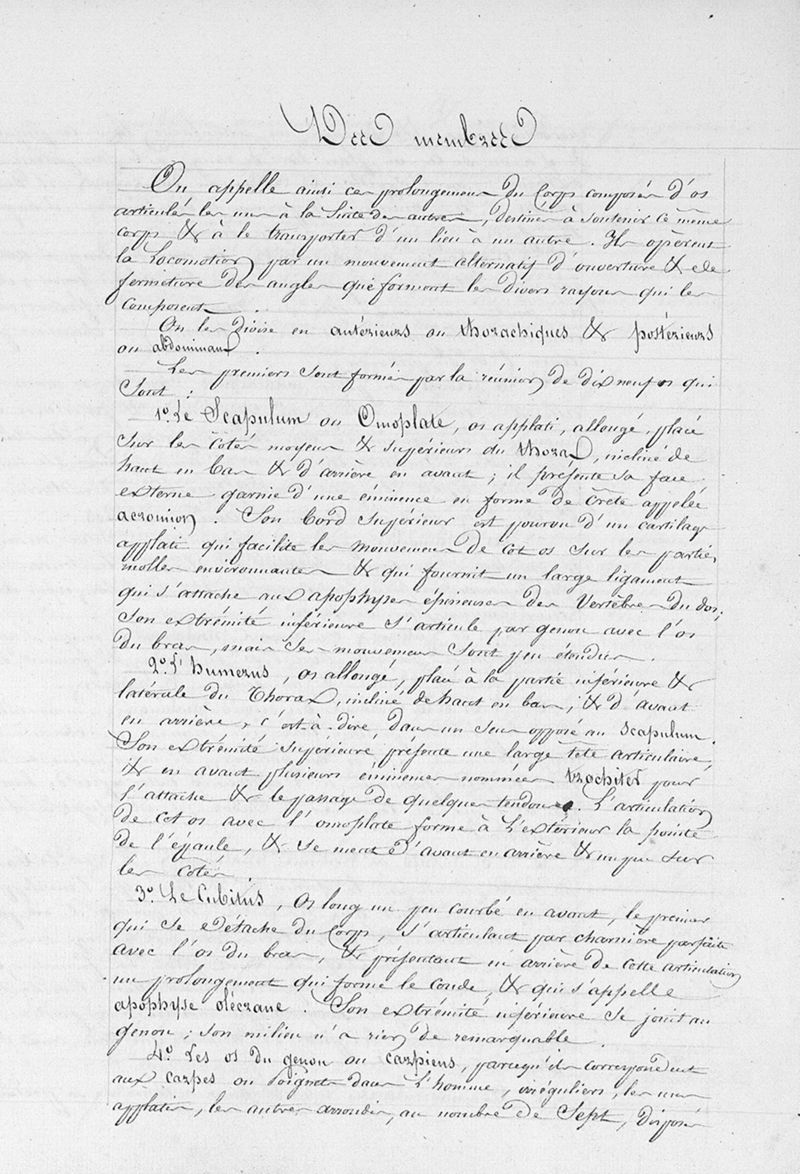 Des membres
On appelle ainsi ces prolongemens du Corps composés d'os
articulés les uns à la Suite des autres, destinés à soutenir ce même
corps & à le transporter d'un lieu à un autre. Ils opèrent
la Locomotion par un mouvement alternatif d'ouverture & de
fermeture des angles que forment les divers rayons qui les
composent.
On les divise en antérieurs ou thorachiques & postérieurs
ou abdominaux.
Les premiers Sont formés par la réunion de dix neuf os qui
Sont :
1º. Le Scapulum ou Omoplate, os applati, allongé, placé
sur les cotés moyens & supérieurs du thorax, incliné de
haut en bas & d'arrière en avant ; il présente sa face
externe garnie d'une éminence en forme de crête appelée
acromion. Son bord supérieur est pourvu d'un cartilage
applati qui facilite les mouvemens de cet os sur les parties
molles environnantes & qui fournit un large ligament
qui s'attache aux apophyses épineuses des Vertèbres du dos ;
Son extrémité inférieure s'articule par genou avec l'os
du bras, mais ses mouvemens sont peu étendus.
2º. L'humerus, os allongé, placé à la partie inférieure &
latérale du Thorax, incliné de haut en bas, & d'avant
en arrière, c'est-à-dire, dans un sens opposé au scapulum.
Son extrémité supérieure présente une large tête articulaire,
& en avant plusieurs éminences nommées trochiter pour
l'attache & le passage de quelques tendons. L'articulation
de cet os avec l'omoplate forme à l'extérieur la pointe
de l'épaule, & se meut d'avant en arrière & un peu sur
les cotés.
3º. Le Cubitus, os long un peu courbé en avant, le premier
qui se détache du Corps, s'articulant par charnière parfaite
avec l'os du bras, & présentant en arrière de cette articulation
un prolongement qui forme le coude, & qui s'appelle
apophyse olécrane. Son extrémité inférieure se joint au
genou ; son milieu n'a rien de remarquable.
4º. Les os du genou ou carpiens, parcequ'ils correspondent
aux carpes ou poignet dans l'homme, irréguliers, les uns
applatis, les autres arrondis, au nombre de Sept, disposés